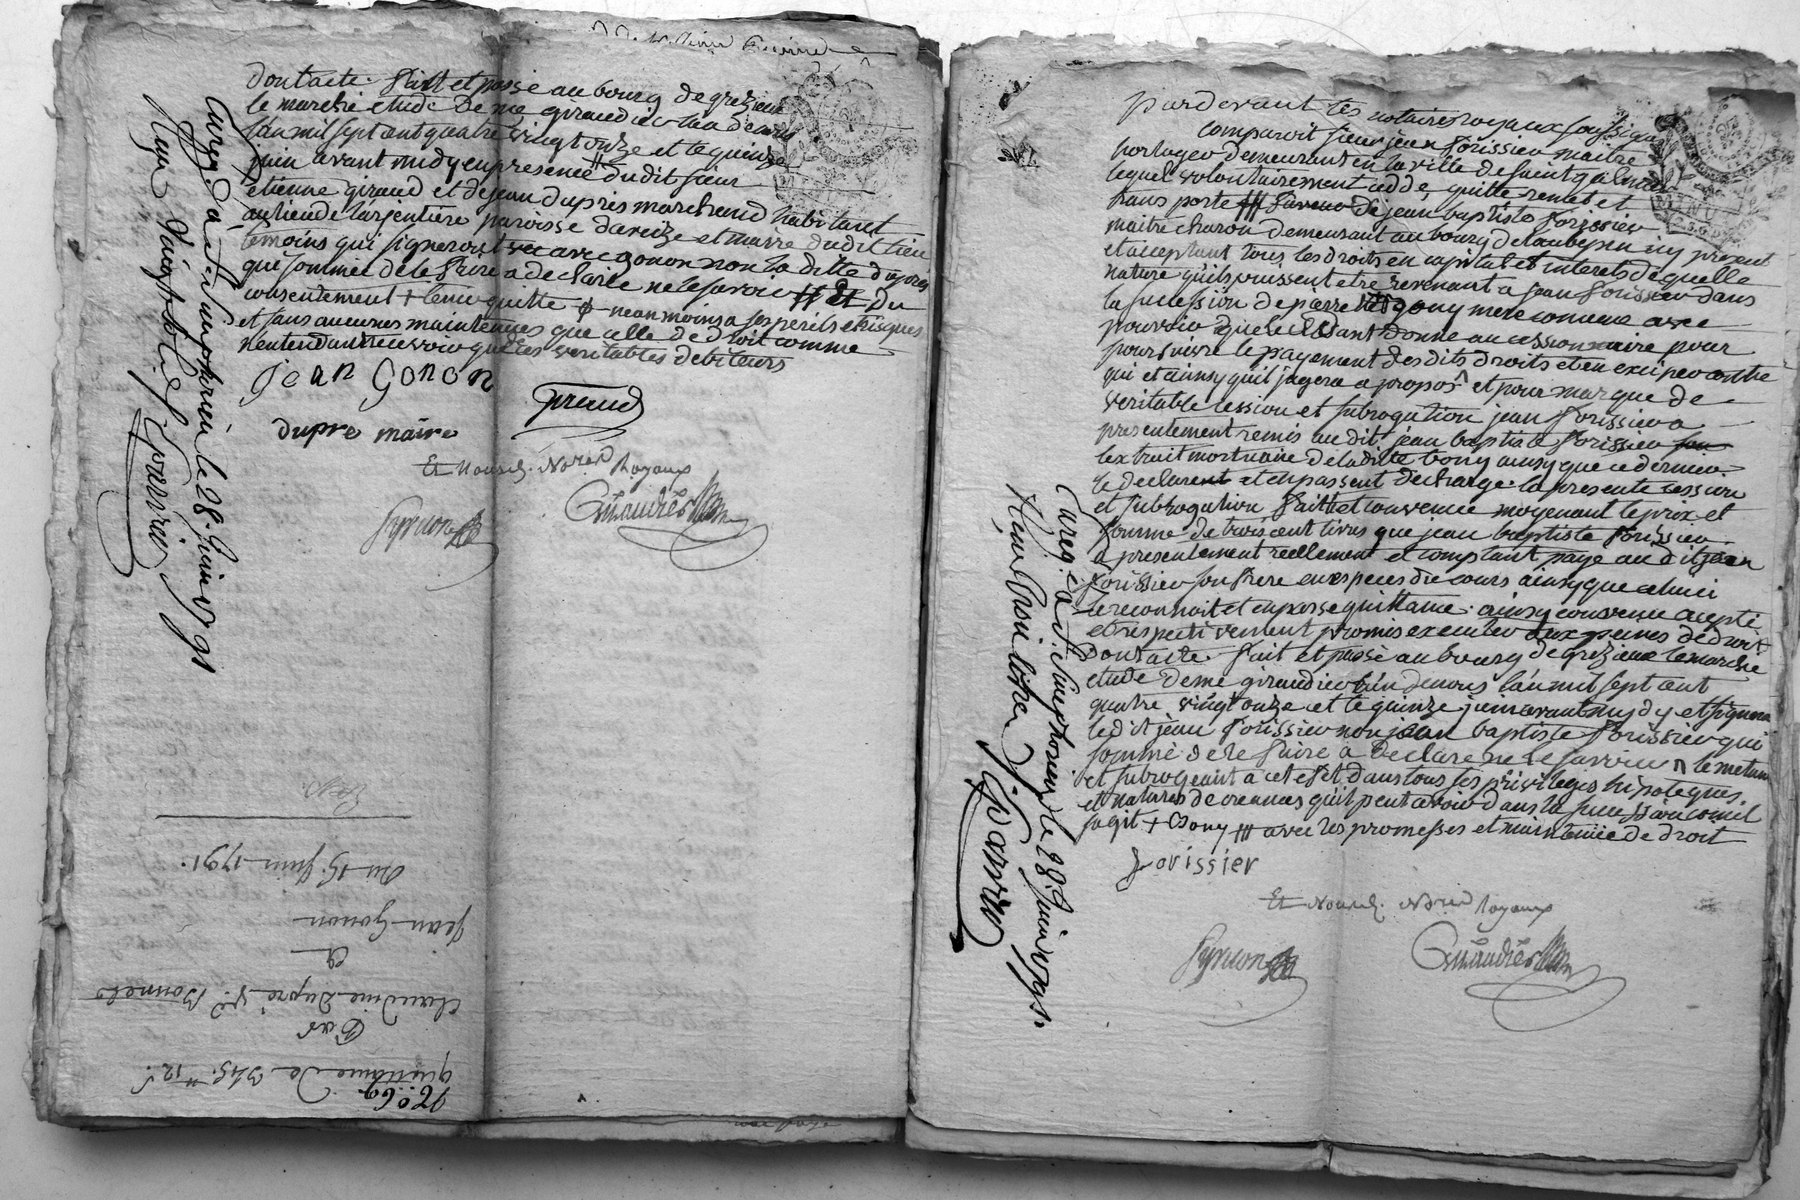 Dont acte. Fait et passé au bourg de grezieux
le marché etude de me giraudier l'un de nous
l'an mil sept cent quatre vingt onze et le quinze
juin avant midy en presence dudit sieur
étienne giraud et de jean dupré marchand habitant
au lieu de l'arjentiere paroisse d'aveize et maire dudit lieu
témoins qui signeront avec gonon non la ditte dupré
que sommée de le faire a déclaré ne le savoir du
consentement + lenir quitte neanmoins a ses perils et risques
et sans aucunes maintenues que celle de droit comme
n'entendant recevoir que des veritables debiteurs
jean Gonon
Giraud
dupré maire
Et Nous Notres Royaux
Giraudier
Enreg. à St. Simphorien le 28. Juin 1791
Reçu
quittance de 345.tt 12.s
Par
Claudine Dupré Ve. Bonnet
a
Jean Gonon
Du 15. Juin 1791.
Pardevant les notaires royaux soussignés
comparoit sieur jean forissier maître
horloger demeurant en la ville de saint galmier
lequel volontairement cedde, quitte remet et
transporte jean baptiste forissier
maitre charon demeurant au bourg de laubepin icy present
et acceptant tous les droits en capital et interets de quelle
nature qu'ils puissent etre revenant a jean forissier dans
la succession de pierrette gony mere commune avec
pouvoir que le cedant donne au cessionnaire pour
poursuivre le payement desdits droits et en exciper contre
qui et ainsy qu'il jugera a propos et pour marque de
veritable cession et subrogation jean forissier a
presentement remis audit jean baptiste forissier
l'extrait mortuaire de la ditte gony ainsy que ce dernier
le declarent et en passent decharge. la presente cession
et subrogation faitte et convenue moyenant le prix et
somme de trois cent livres que jean baptiste forissier
a presentement réellement et comptant payé au dit jean
forissier son frere en especes du cours ainsy que celui ci
le reconnoit et en passe quittance. ainsy convenu accepté
et respectivement promis executer aux peines de droit
Dont acte. fait et passé au bourg de grezieux le marché
etude de me giraudier l'un de nous l'an mil sept cent
quatre vingt onze et le quinze juin avant midy et signera
le dit jean forissier non jean baptiste forissier qui
sommé de le faire a declaré ne le savoir le metant
et subrogeant a cet effet dans tous les privileges hipoteques
et natures de creances qu'il peut avoir dans la succession dont il
s'agit + gony avec les promesses et maintenüe de droit
forissier
Et Nous Notres Royaux
Giraudier
Enreg. à St. Simphorien le 28. Juin 1791.
Reçu trois livres